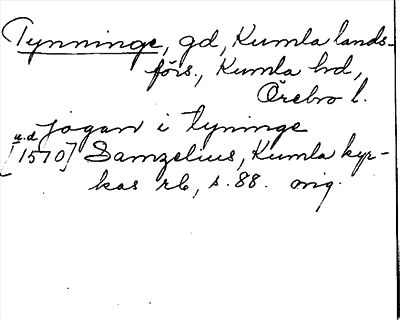 Tynninge, gd, Kumla lands-
förs., Kumla hd,
Örebro l.
jögan i tyninge
u.d.
[1570] Samzelius, Kumla kyr-
kas rb, s. 88. orig.